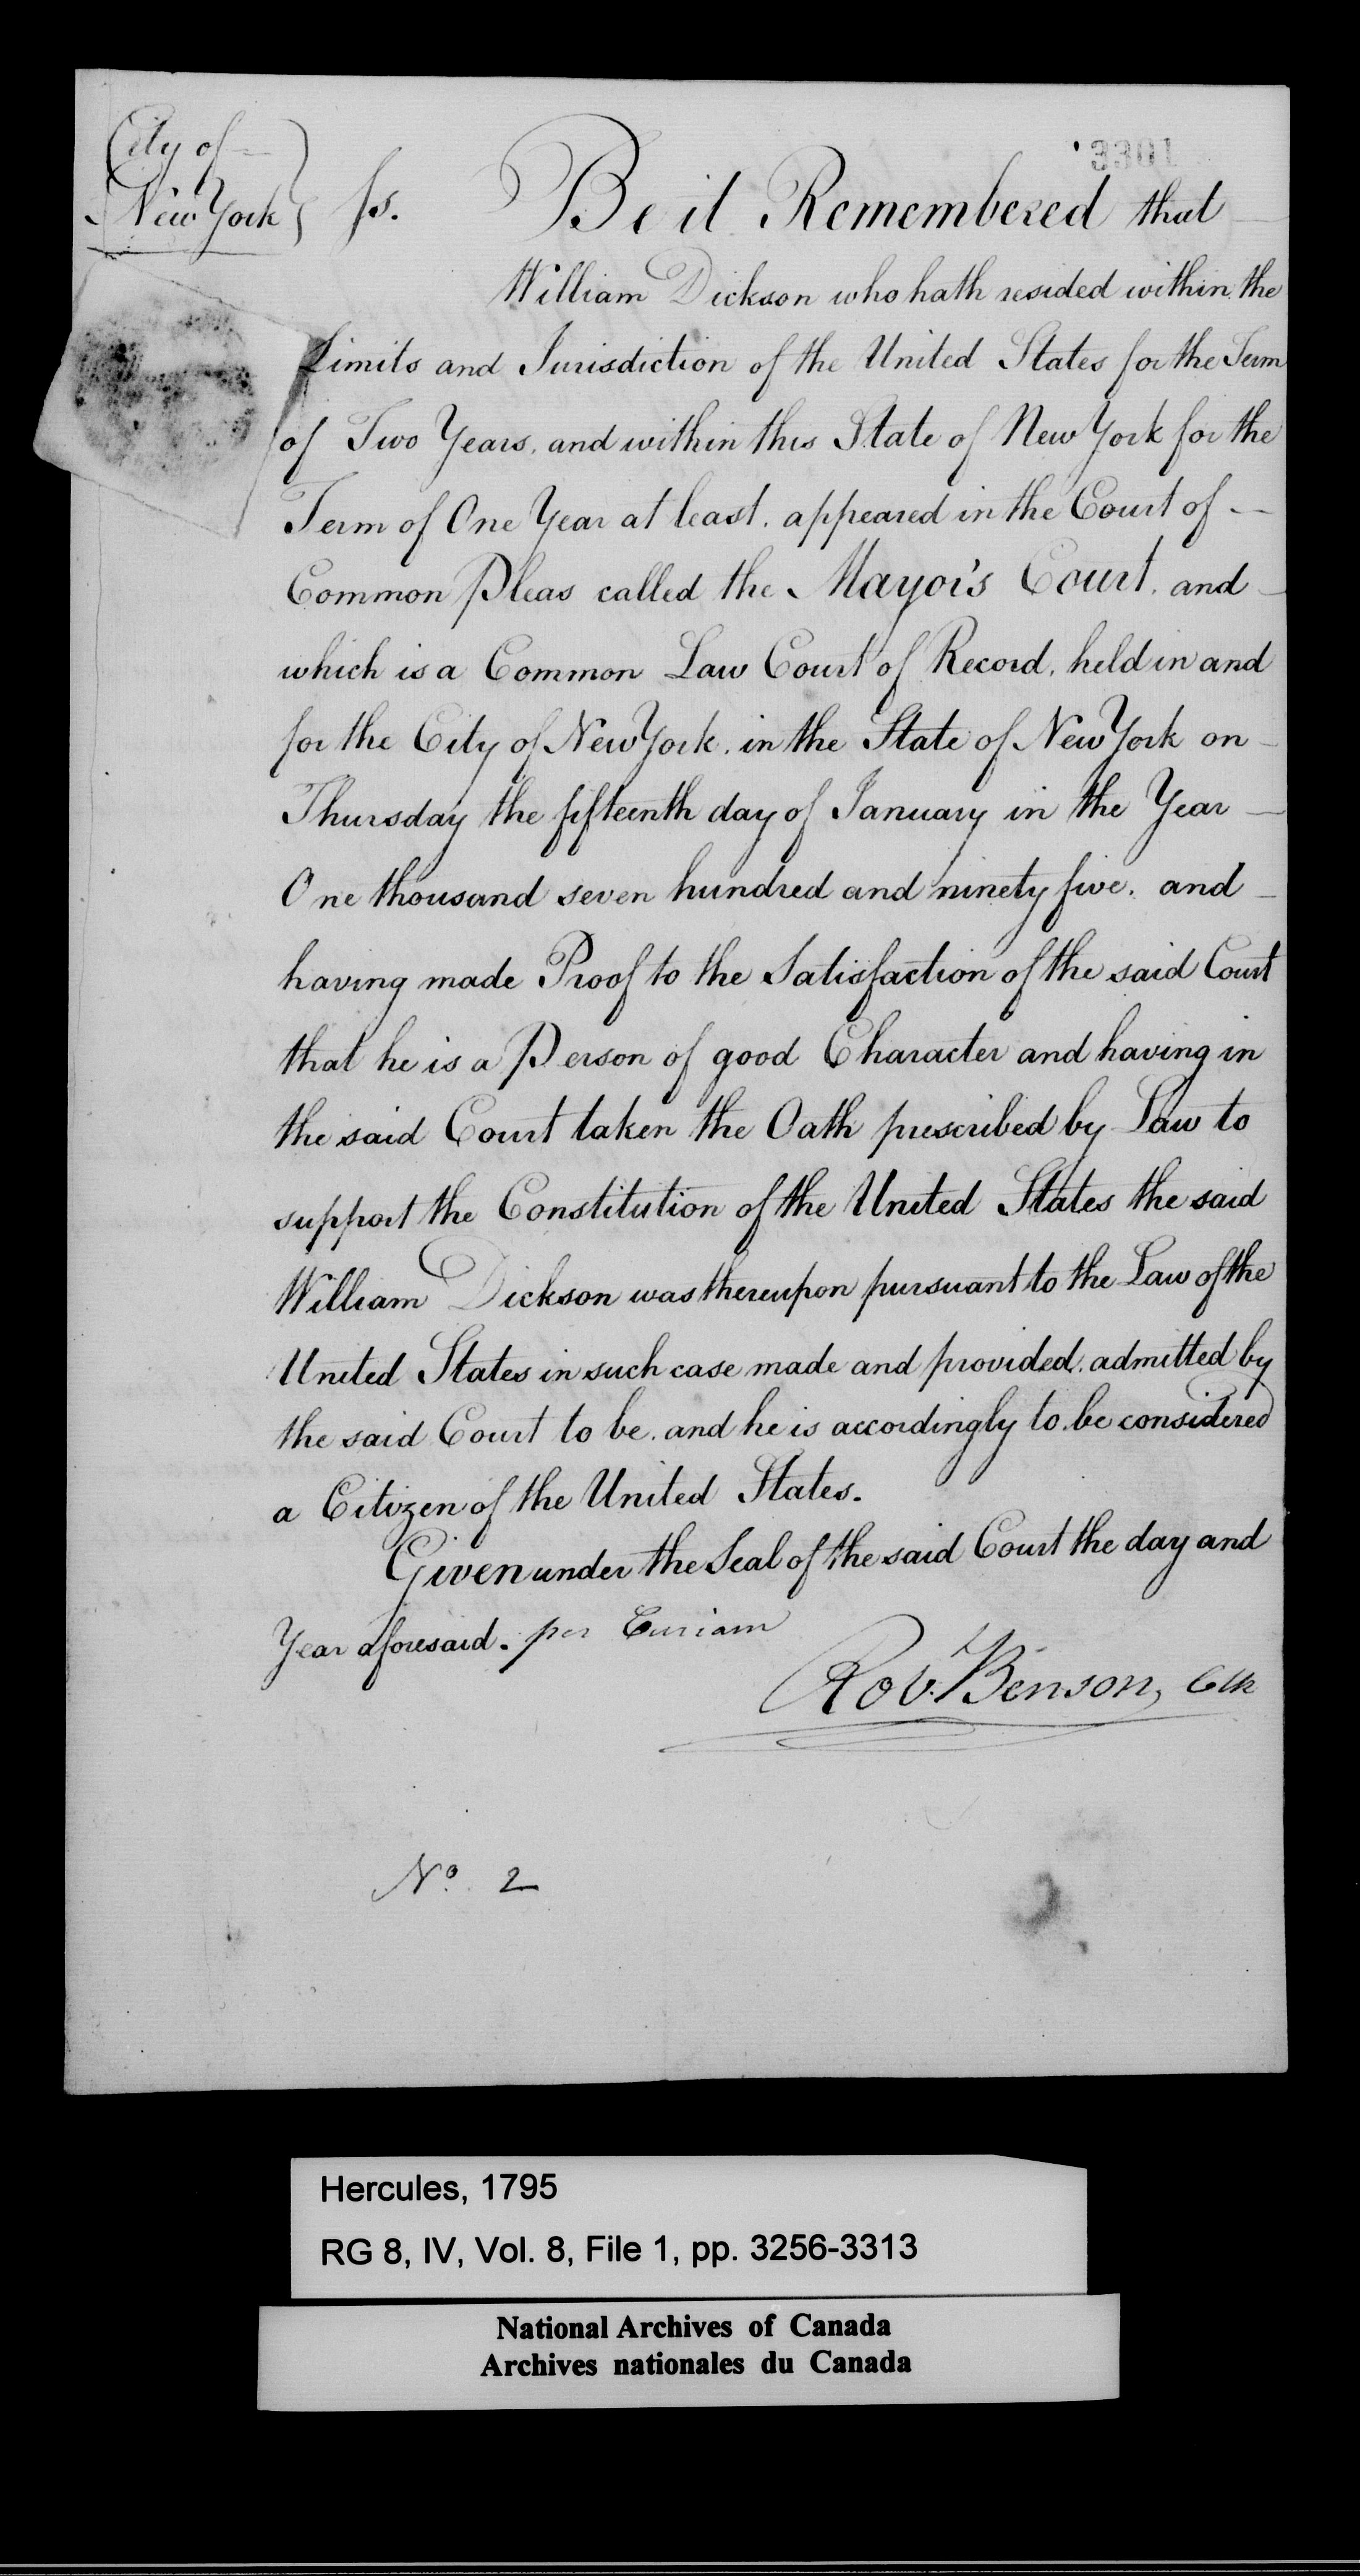 City of
New York } ss. Be it Remembered that
William Dickson who hath resided within the
Limits and Jurisdiction of the United States for the Term
of Two Years, and within this State of New York for the
Term of One Year at least, appeared in the Court of —
Common Pleas called the Mayor's Court, and —
which is a Common Law Court of Record, held in and
for the City of New York, in the State of New York on —
Thursday the fifteenth day of January in the Year —
One thousand seven hundred and ninety five, and —
having made Proof to the Satisfaction of the said Court
that he is a Person of good Character and having in
the said Court taken the Oath prescribed by Law to
support the Constitution of the United States the said
William Dickson was thereupon pursuant to the Law of the
United States in such case made and provided, admitted by
the said Court to be, and he is accordingly to be considered
a Citizen of the United States.
Given under the Seal of the said Court the day and
Year aforesaid. per Curiam
Rob. Benson, Clk
No. 2
Hercules, 1795
RG 8, IV, Vol. 8, File 1, pp. 3256-3313
National Archives of Canada
Archives nationales du Canada